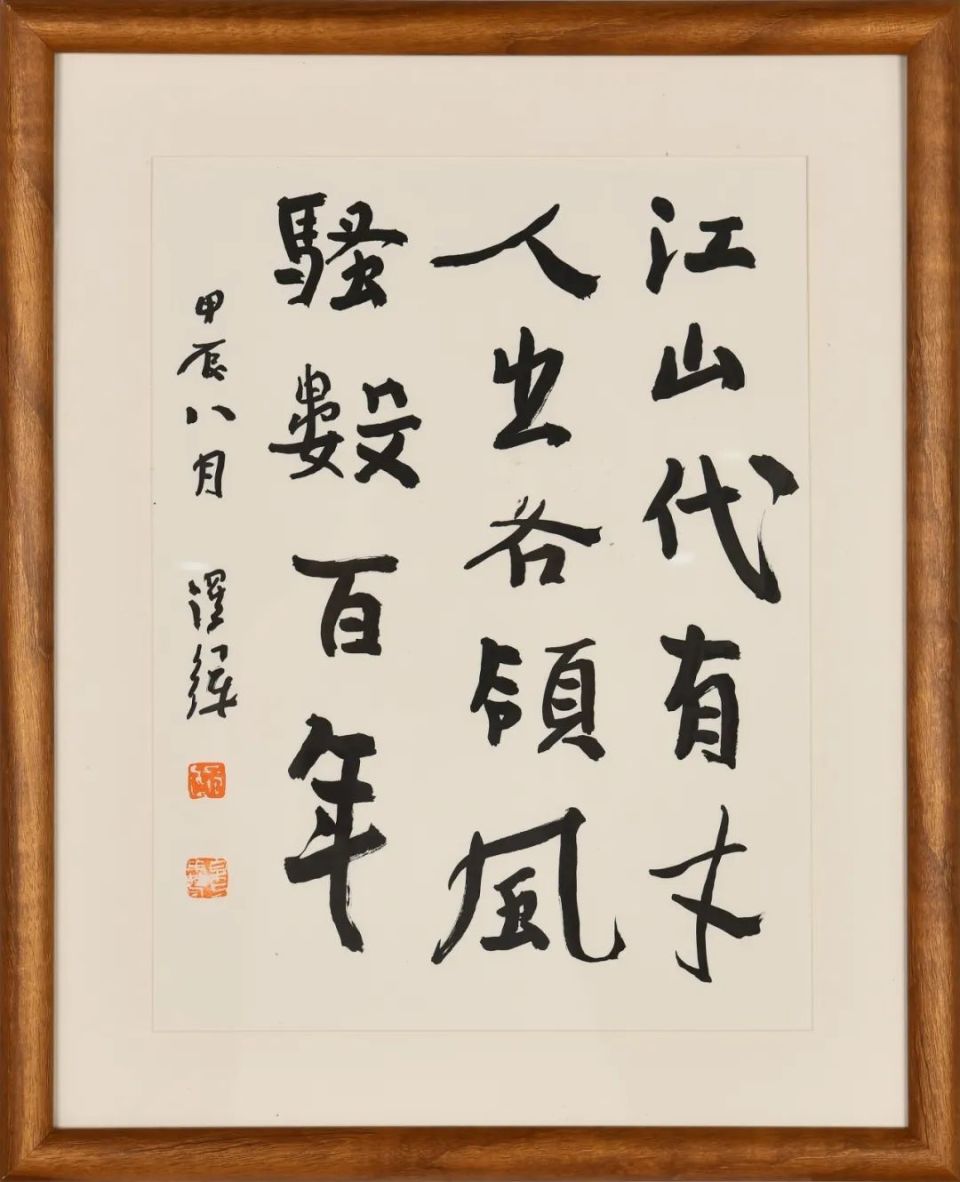 江山代有才
人出各領風
騷數百年
甲辰八月